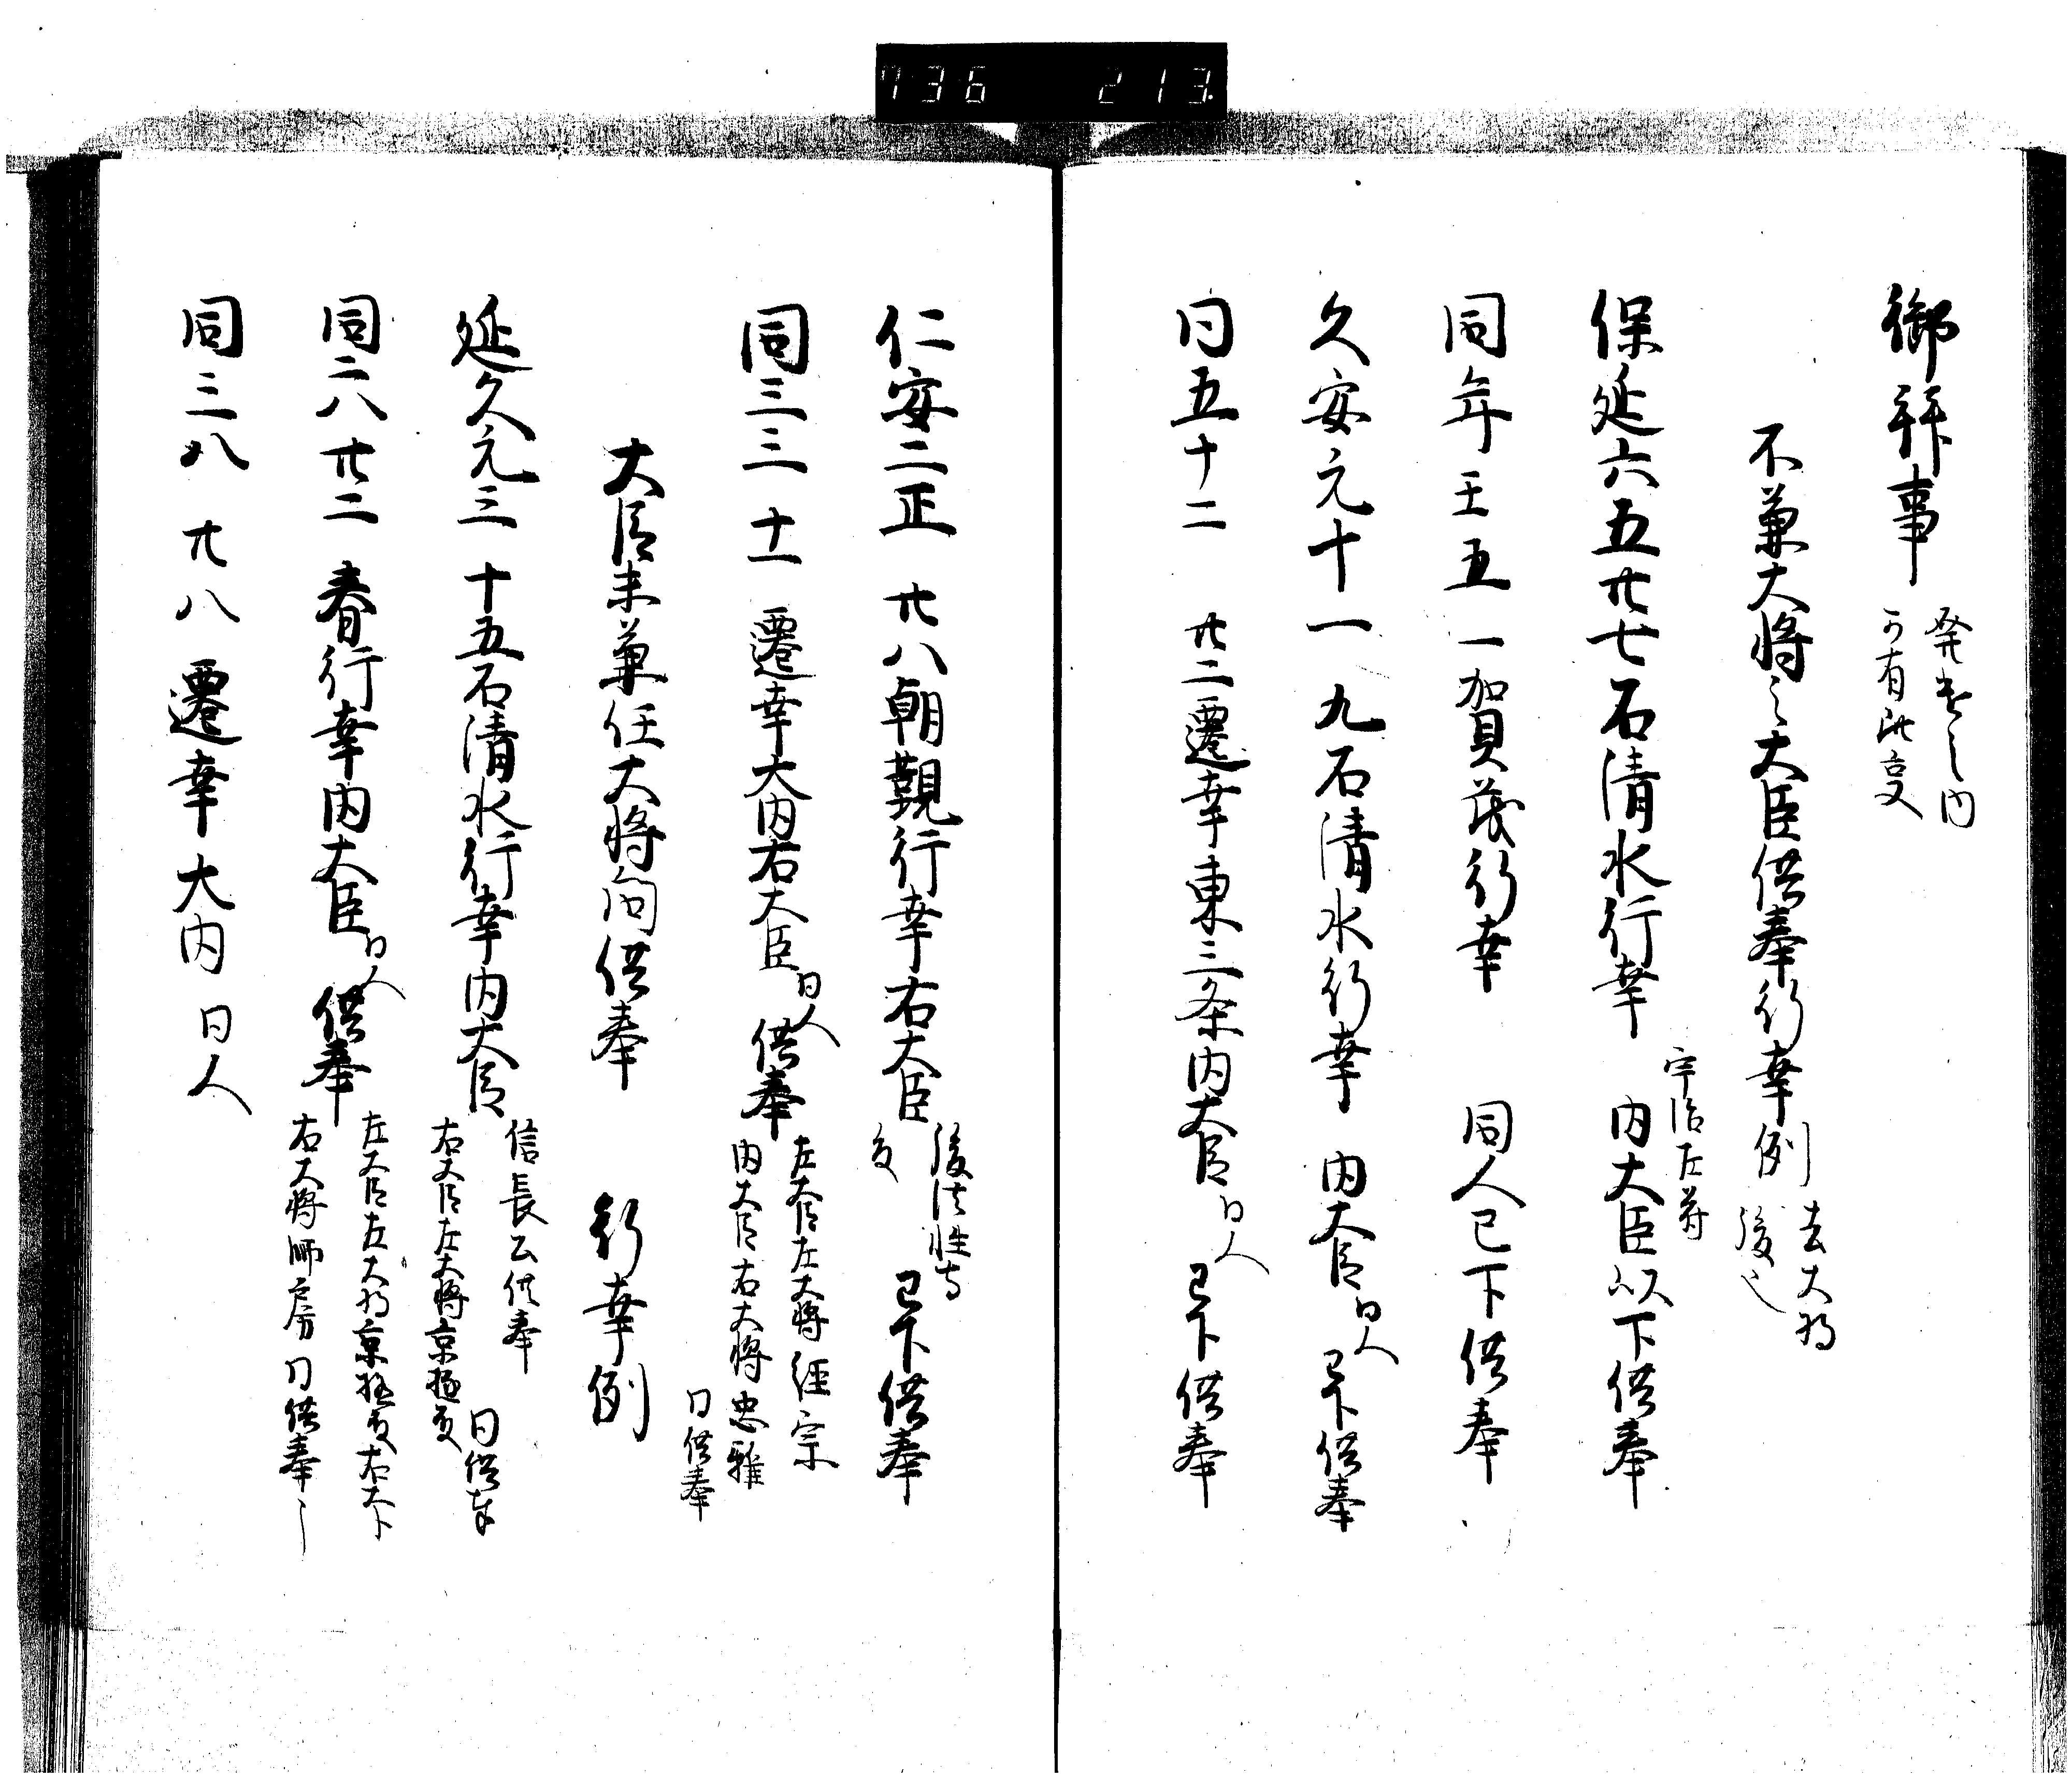 736 213
御拜事
発遣之内
可有此事
不兼大將之大臣供奉行幸例
去大将
後之
保延六五廿七石清水行幸 内大臣以下供奉
宇治左府
同年壬五一賀茂行幸 同人已下供奉
久安元十一九石清水行幸 内大臣同人已下供奉
同五十二 廿二遷幸東三条内大臣同人已下供奉
仁安二正 廿八朝覲行幸右大臣 已下供奉
後法性寺
同三三十一遷幸大内右大臣同人供奉
左大臣左大將経宗
内大臣右大將忠雅
同供奉
大臣未兼任大將間供奉 行幸例
延久元三十五石清水行幸内大臣
信長公供奉
右大臣左大將京極殿
同供奉
同二八廿二春行幸内大臣同人供奉
左大臣左大将京極殿右大下
右大將師房同供奉之
同三八廿八遷幸大内同人